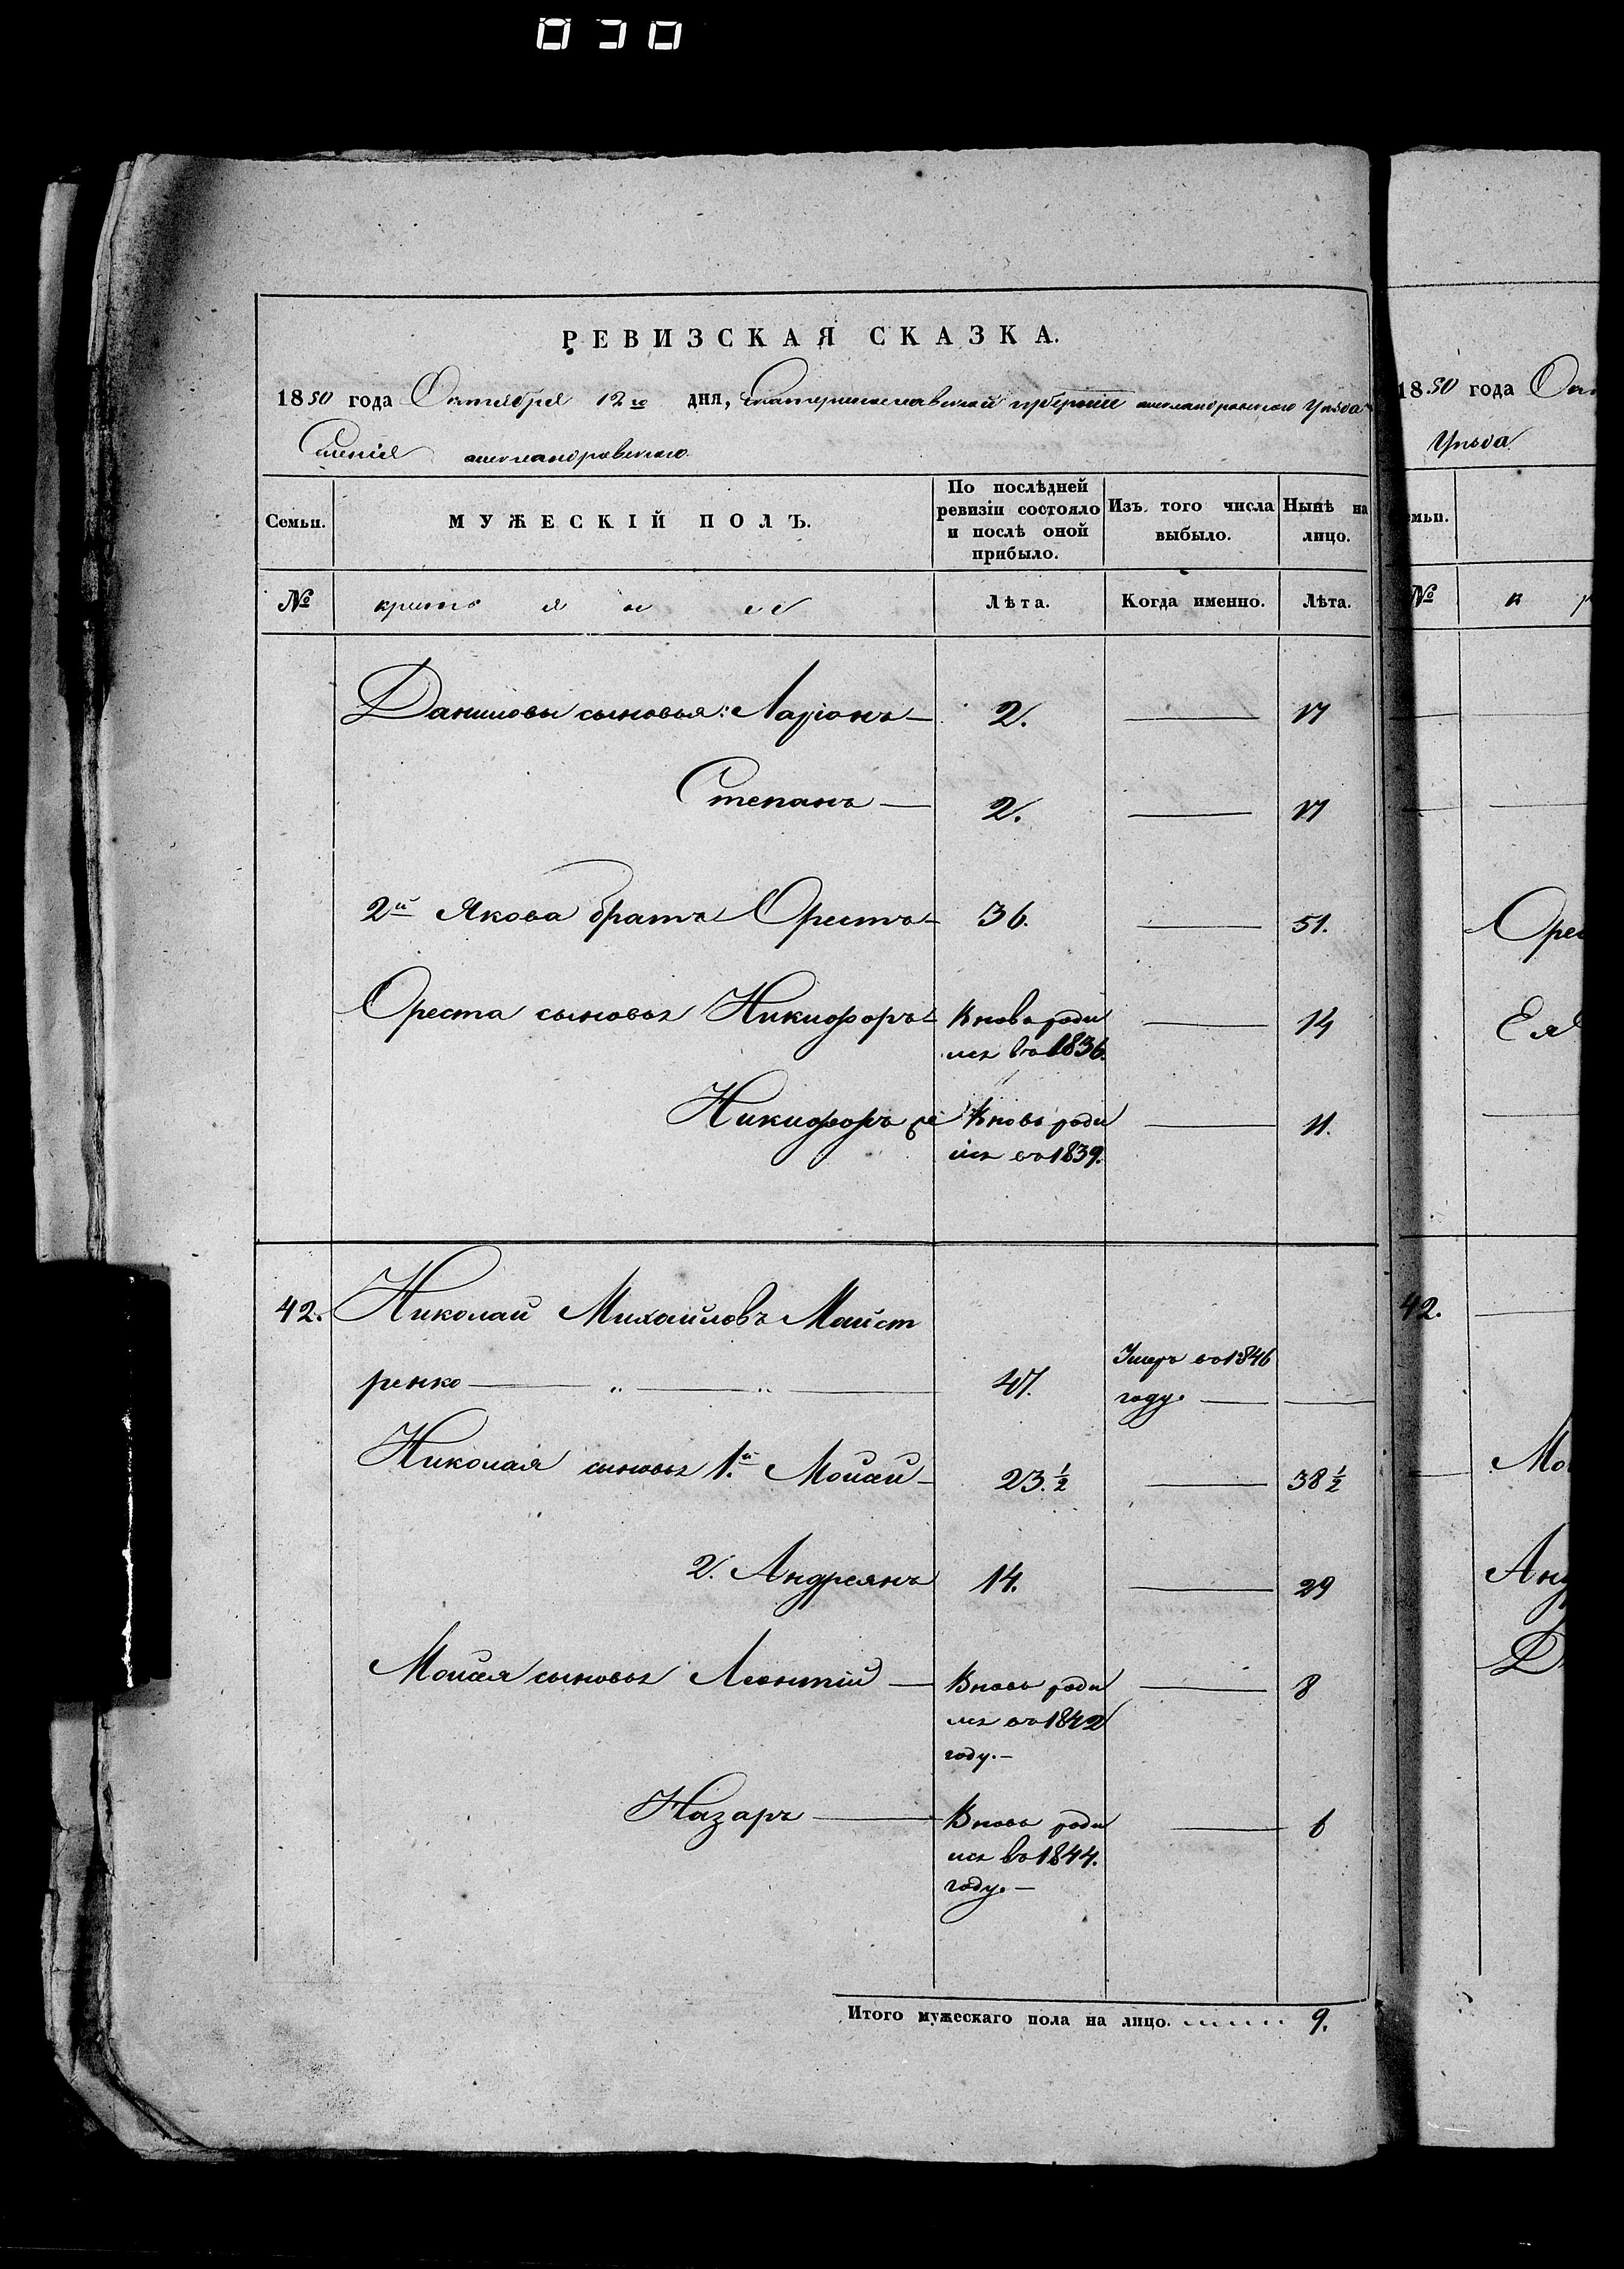 030
РЕВИЗСКАЯ СКАЗКА.
1850 года Октября 12го дня, Екатеринославской губернии александровского Уѣзда
Имѣнія александровского
Семьи. МУЖЕСКІЙ ПОЛЪ. По послѣдней ревизіи состояло и послѣ оной прибыло. Изъ того числа выбыло. Нынѣ на лицо.
№ Лѣта. Когда именно. Лѣта.
Даниловы сыновья: Ларіонъ — 2. — 17
Степанъ — 2. — 17
2й Якова братъ Орестъ — 36. — 51.
Ореста сыновья Никифоръ — Вновь роди — 14
лся въ 1836.
Никифоръ 2й Вновь роди — 11.
лся въ 1839.
42. Николай Михайловъ Майст
ренко — „ — „ — 47. Умеръ въ 1846
году. — —
Николая сыновья 1.й Мойсей — 23.½ — 38½
2. Андреянъ 14. — 29
Мойсея сыновья Леонтій — Вновь роди — 8
лся въ 1842
году. —
Назаръ — Вновь роди — 6
лся въ 1844.
году. —
Итого мужескаго пола на лицо. 9.
1850 года
Уѣзда
№
42.